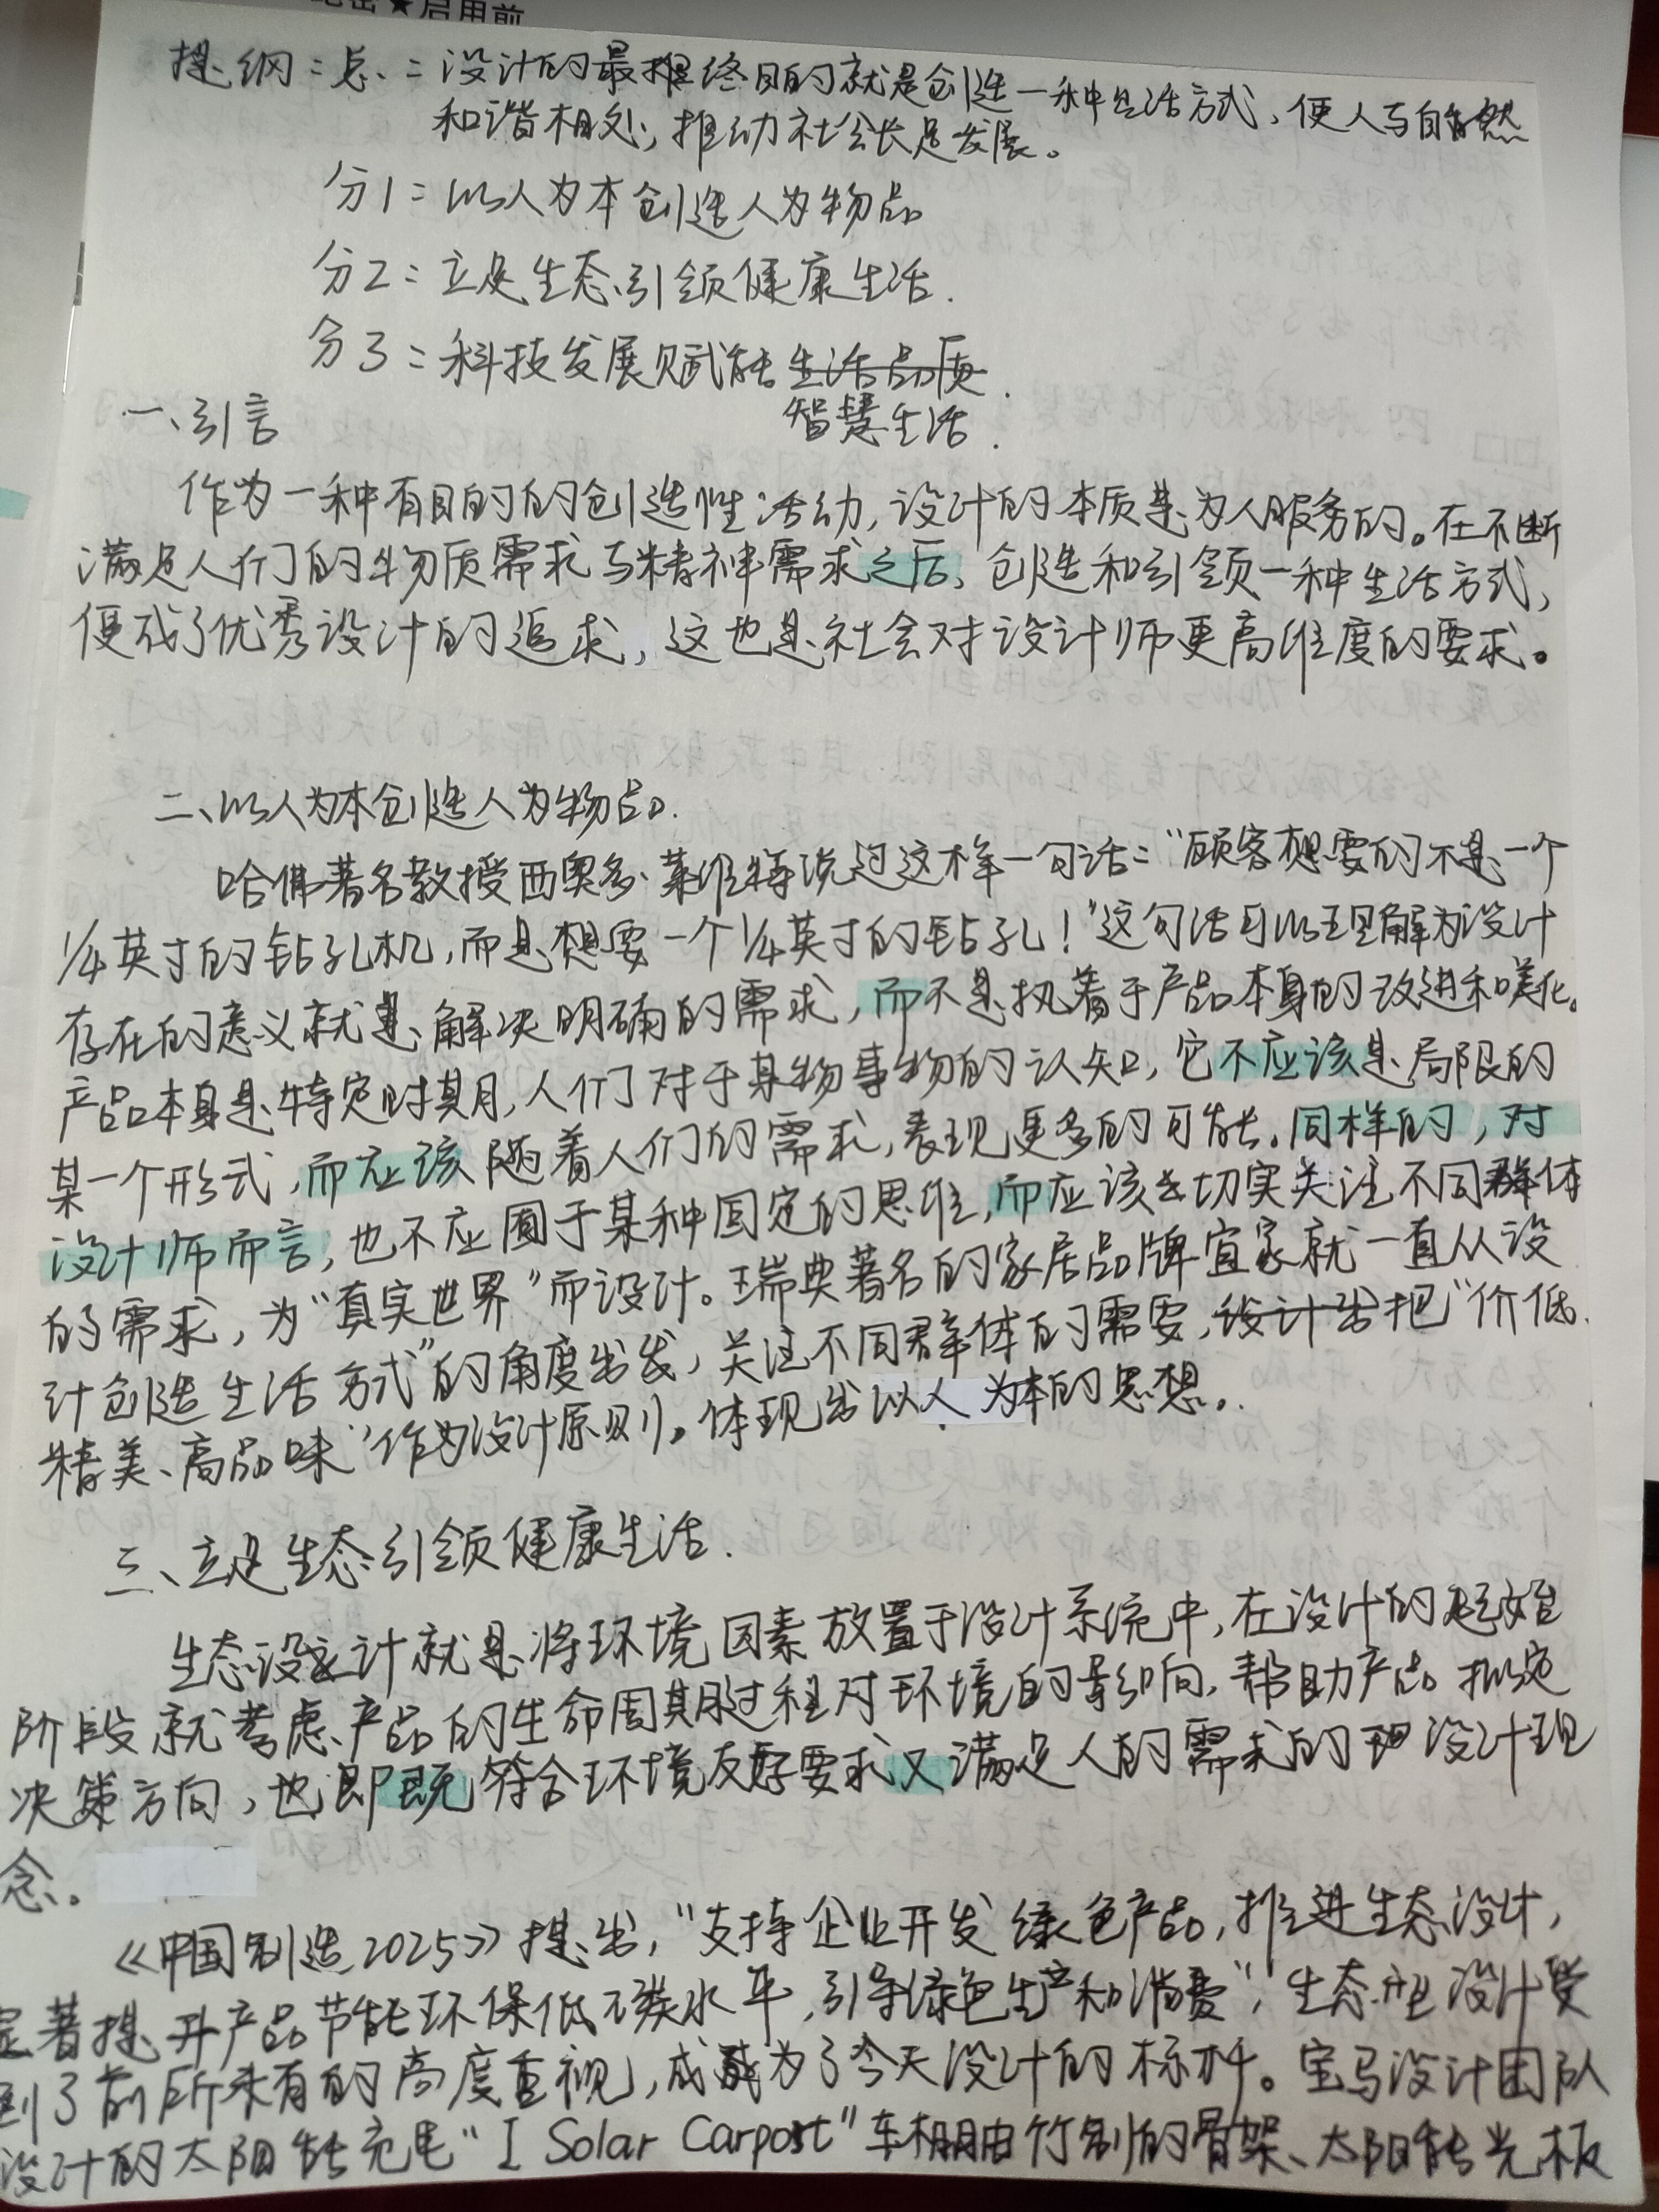 ★启用前
提纲：总：设计的最终目的就是创造一种生活方式，使人与自然
和谐相处，推动社会长足发展。
分1：以人为本创造人为物品
分2：立足生态引领健康生活.
分3：科技发展赋能生活品质.
智慧生活.
一、引言
作为一种有目的的创造性活动，设计的本质是为人服务的。在不断
满足人们的物质需求与精神需求之后，创造和引领一种生活方式，
便成了优秀设计的追求，这也是社会对设计师更高维度的要求。
二、以人为本创造人为物品.
哈佛著名教授西奥多·莱维特说过这样一句话：“顾客想要的不是一个
1/4英寸的钻孔机，而是想要一个1/4英寸的钻孔！”这句话可以理解为设计
存在的意义就是解决明确的需求，而不是执着于产品本身的改进和美化。
产品本身是特定时期，人们对于某物事物的认知，它不应该是局限的
某一个形式，而应该随着人们的需求，表现更多的可能。同样的，对
设计师而言，也不应囿于某种固定的思维，而应该去切实关注不同群体
的需求，为“真实世界”而设计。瑞典著名的家居品牌宜家就一直从设
计创造生活方式”的角度出发，关注不同群体的需要，设计出把“价低、
精美、高品味”作为设计原则。体现出以人为本的思想。
三、立足生态引领健康生活.
生态设计就是将环境因素放置于设计系统中，在设计的起始
阶段就考虑产品的生命周期过程对环境的影响，帮助产品拟定
决策方向，也即既符合环境友好要求又满足人的需求的设计理
念。
《中国制造2025》提出，“支持企业开发绿色产品，推进生态设计，
显著提升产品节能环保低碳水平，引导绿色生产和消费”，生态型设计受
到了前所未有的高度重视，成为了今天设计的标杆。宝马设计团队
设计的太阳能充电“I Solar Carport”车棚由竹制的骨架、太阳能光板